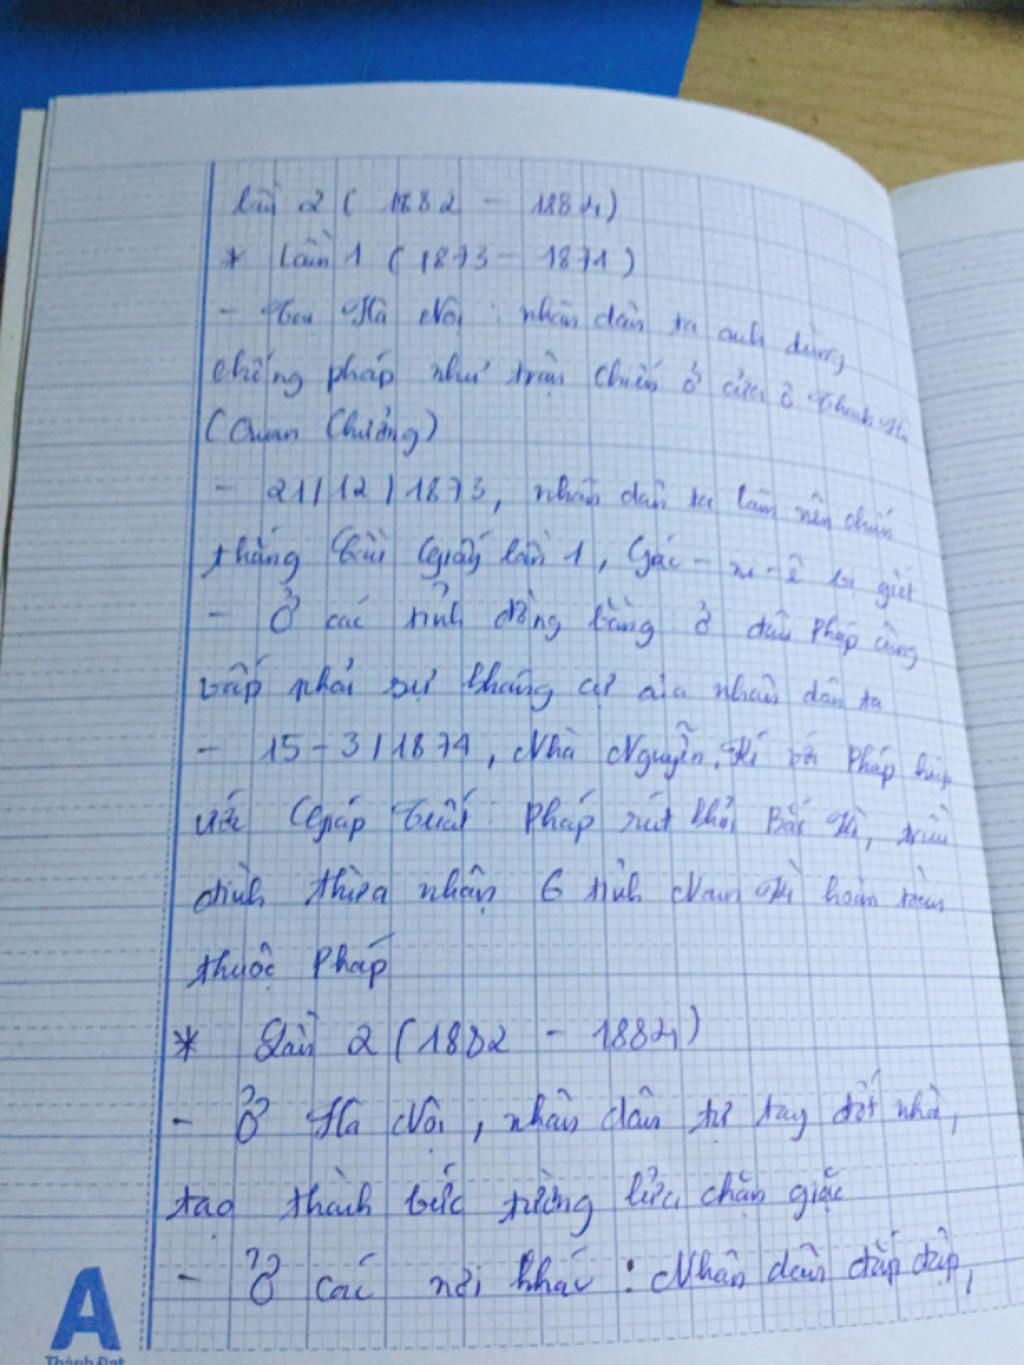 lần 2 ( 1882 - 1884)
* Lần 1 ( 1873 - 1874 )
- Tại Hà Nội : nhân dân ta anh dũng
chống pháp như trận chiến ở cửa ô Thanh Hà
(Quan Chưởng)
- 21/12/1873, nhân dân ta làm nên chiến
thắng Cầu Giấy lần 1, Gác-ni-ê bị giết
- Ở các tỉnh đồng bằng ở đâu Pháp cũng
vấp phải sự kháng cự của nhân dân ta
- 15-3/1874, Nhà Nguyễn kí với Pháp hiệp
ước Giáp Tuất : Pháp rút khỏi Bắc Kì, triều
đình thừa nhận 6 tỉnh Nam Kì hoàn toàn
thuộc Pháp
* Lần 2 (1882 - 1884)
- Ở Hà Nội, nhân dân tự tay đốt nhà,
tạo thành bức tường lửa chặn giặc
- Ở các nơi khác : Nhân dân đắp đập,
A
Thành Đạt